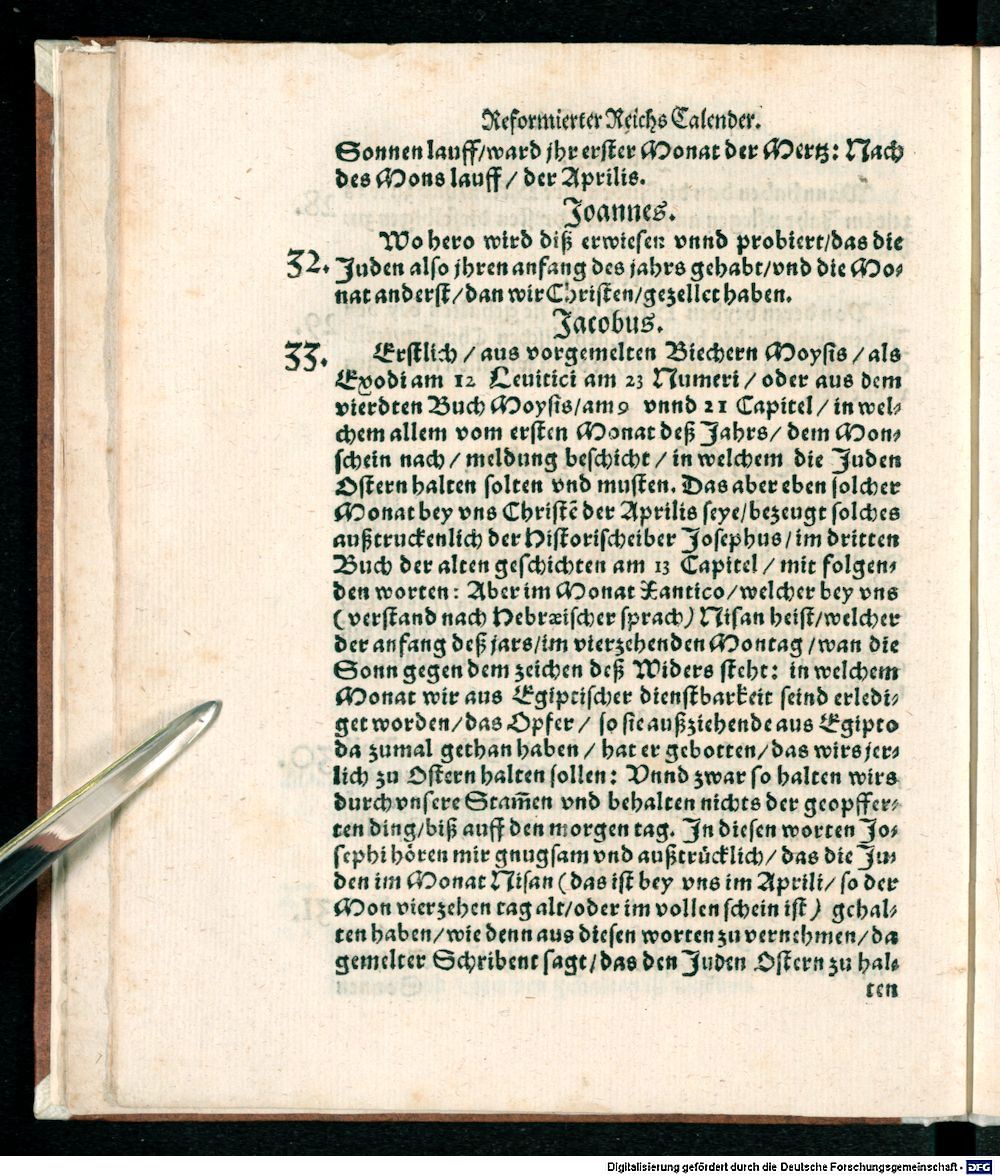 Reformierter Reichs Calender.
Sonnen lauff/ward jhr erster Monat der Mertz: Nach
des Mons lauff / der Aprilis.
Joannes.
Wo hero wird diß erwiesen vnnd probiert/das die
32. Juden also jhren anfang des jahrs gehabt/vnd die Mo-
nat anderst/dan wir Christen/gezellet haben.
Jacobus.
33. Erstlich / aus vorgemelten Biechern Moysis / als
Exodi am 12 Levitici am 23 Numeri / oder aus dem
vierdten Buch Moysis/am 9 vnnd 21 Capitel / in wel-
chem allem vom ersten Monat deß Jahrs/ dem Mon-
schein nach / meldung beschicht / in welchem die Juden
Ostern halten solten vnd musten. Das aber eben solcher
Monat bey vns Christē der Aprilis seye/bezeugt solches
außtruckenlich der Historischeiber Josephus/im dritten
Buch der alten geschichten am 13 Capitel / mit folgen-
den worten: Aber im Monat Xantico/welcher bey vns
(verstand nach Hebræischer sprach) Nisan heist/welcher
der anfang deß jars/im vierzehenden Montag /wan die
Sonn gegen dem zeichen deß Widers steht: in welchem
Monat wir aus Egiptischer dienstbarkeit seind erledi-
get worden/das Opfer / so sie außziehende aus Egipto
da zumal gethan haben / hat er gebotten/das wirs jer-
lich zu Ostern halten sollen: Vnnd zwar so halten wirs
durch vnsere Stam̄en vnd behalten nichts der geopffer-
ten ding/biß auff den morgen tag. In diesen worten Jo-
sephi hören mir gnugsam vnd außtrücklich/ das die Ju-
den im Monat Nisan (das ist bey vns im Aprili/ so der
Mon vierzehen tag alt/oder im vollen schein ist) gehal-
ten haben/wie denn aus diesen worten zu vernehmen/da
gemelter Schribent sagt/das den Juden Ostern zu hal-
ten
Digitalisierung gefördert durch die Deutsche Forschungsgemeinschaft - DFG